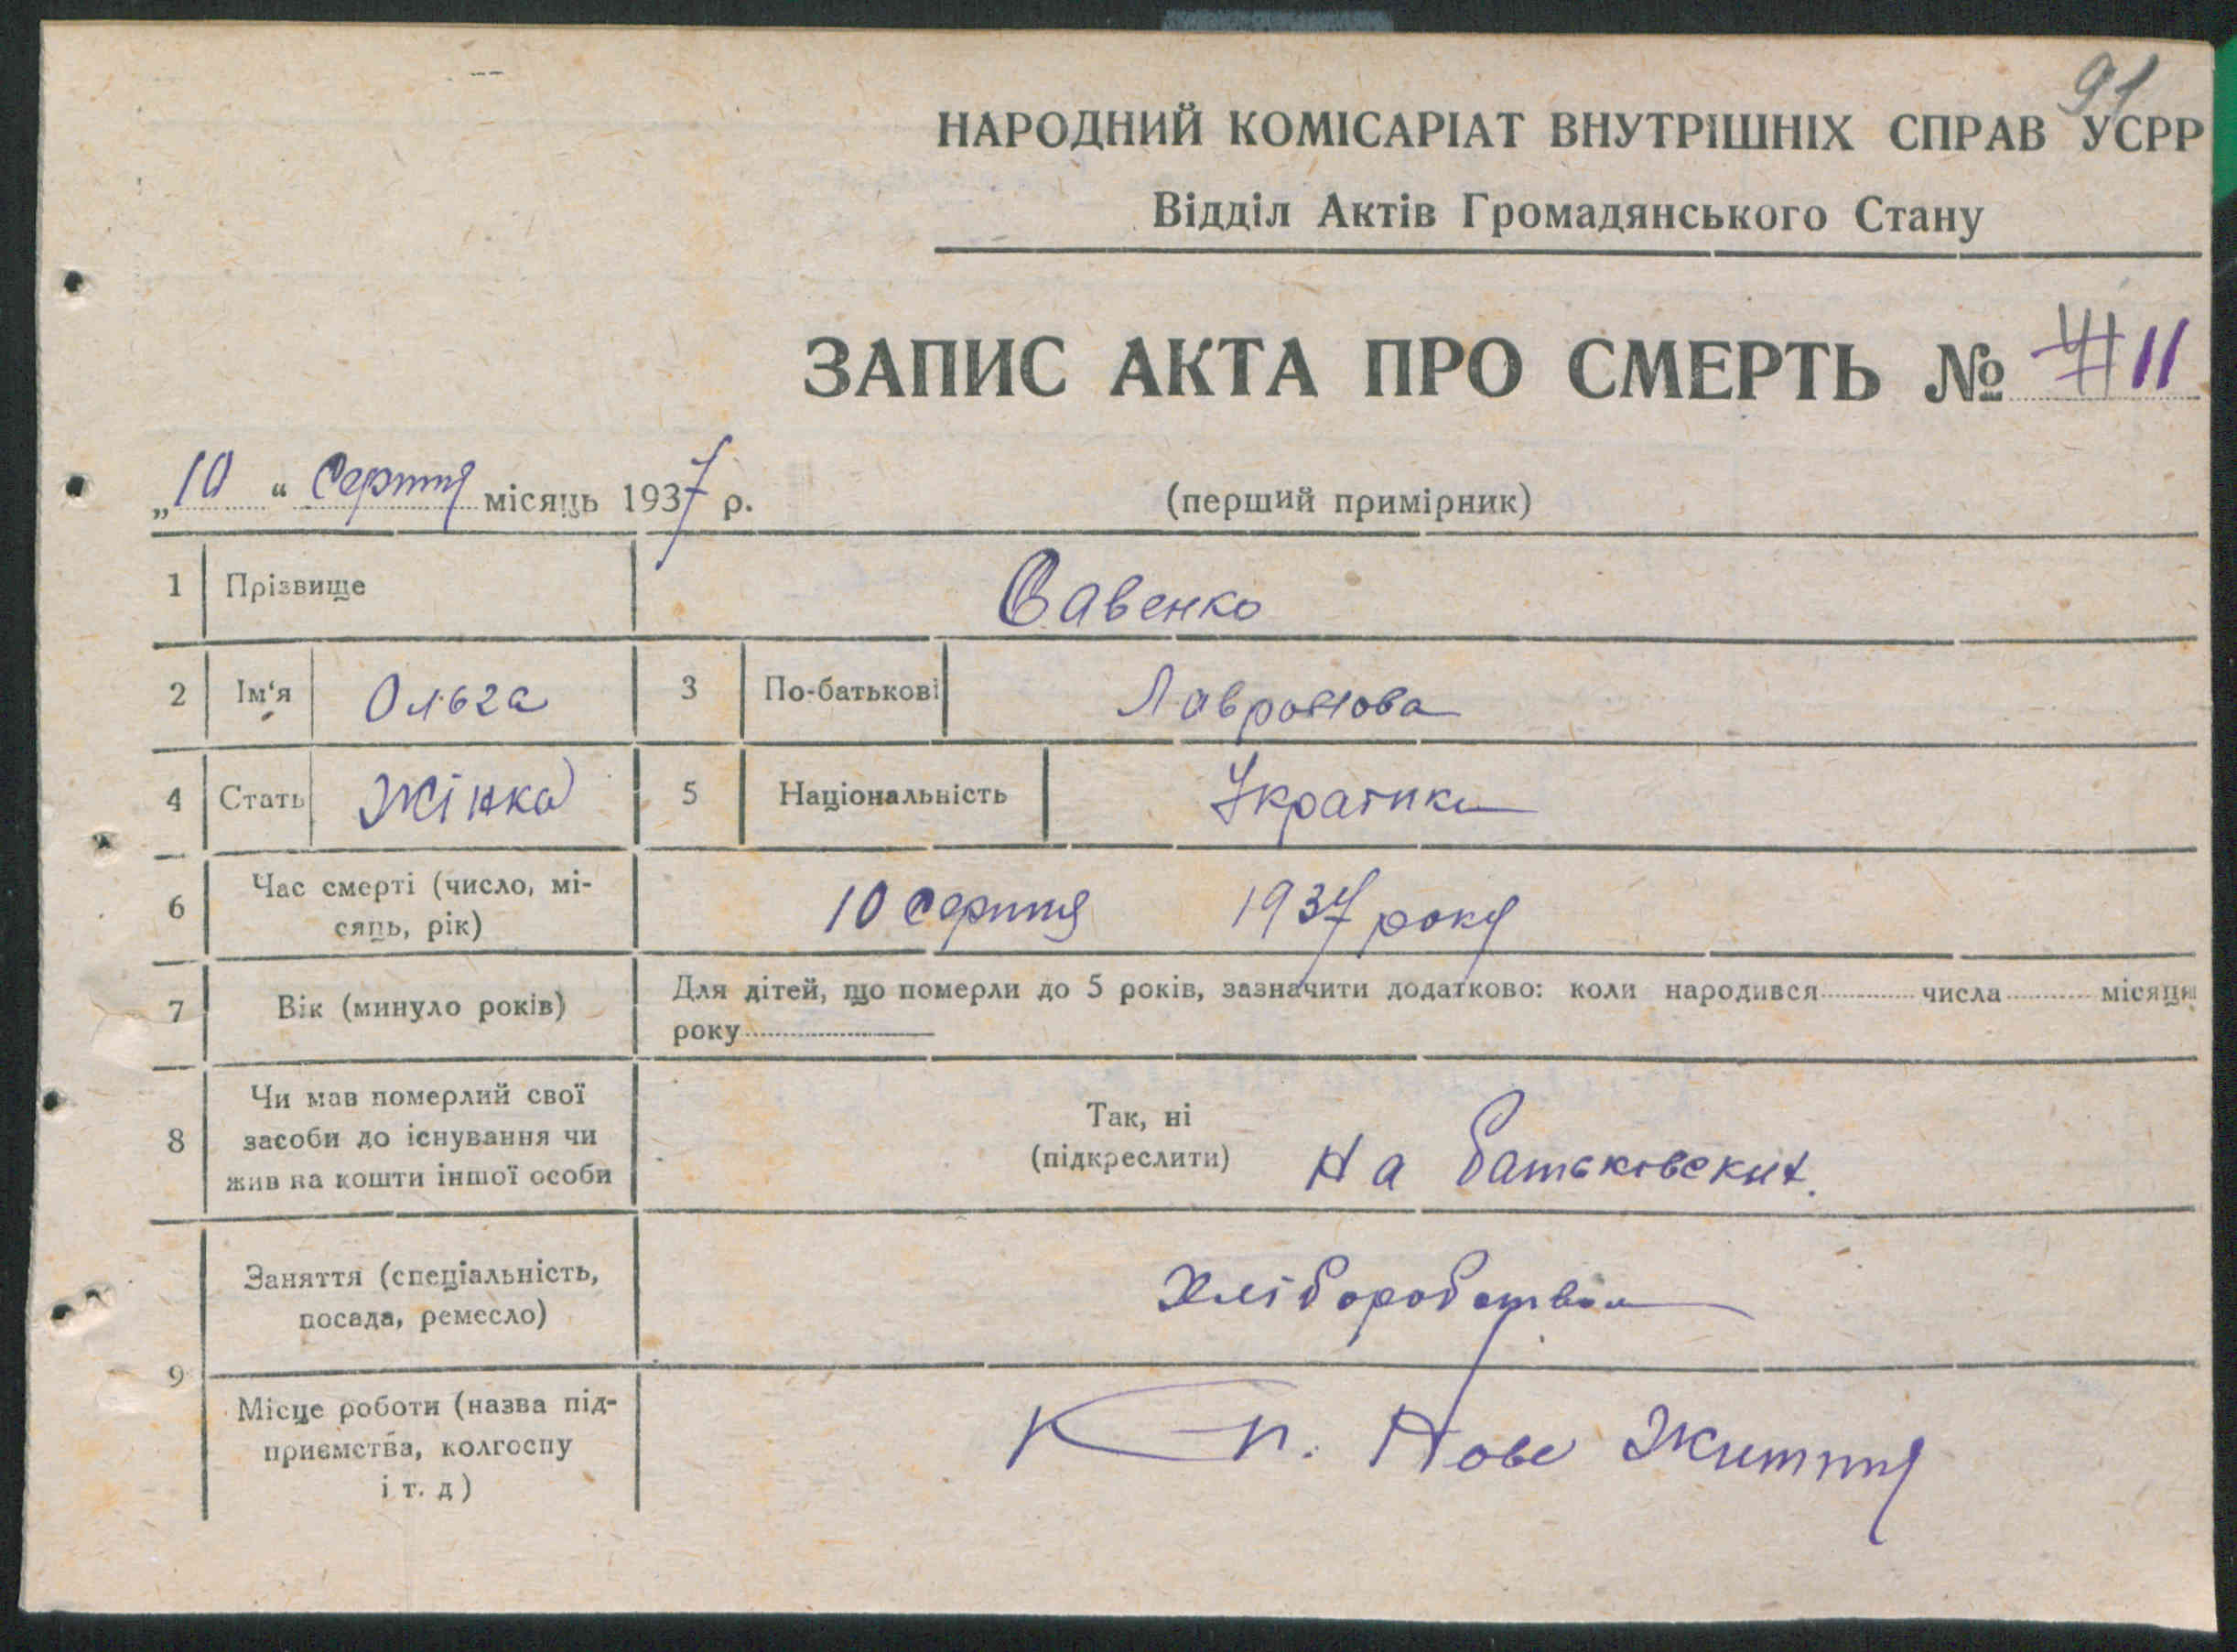 91
НАРОДНИЙ КОМІСАРІАТ ВНУТРІШНІХ СПРАВ УСРР
Відділ Актів Громадянського Стану
ЗАПИС АКТА ПРО СМЕРТЬ № 11
„10“ Серпня місяць 1937 р.
(перший примірник)
1 Прізвище Савенко
2 Ім‘я Ольга 3 По-батькові
4 Стать Жінка 5 Національність
6 Час смерті (число, мі-
сяць, рік) 10 серпня 1937 року
7 Вік (минуло років) Для дітей, що померли до 5 років, зазначити додатково: коли народився числа місяця
року
8 Чи мав померлий свої
засоби до існування чи
жив на кошти іншої особи
Так, ні
(підкреслити) На батьковских.
9 Заняття (спеціальність,
посада, ремесло)
Місце роботи (назва під-
приємства, колгоспу
і т. д)
К-п. Нове Життя